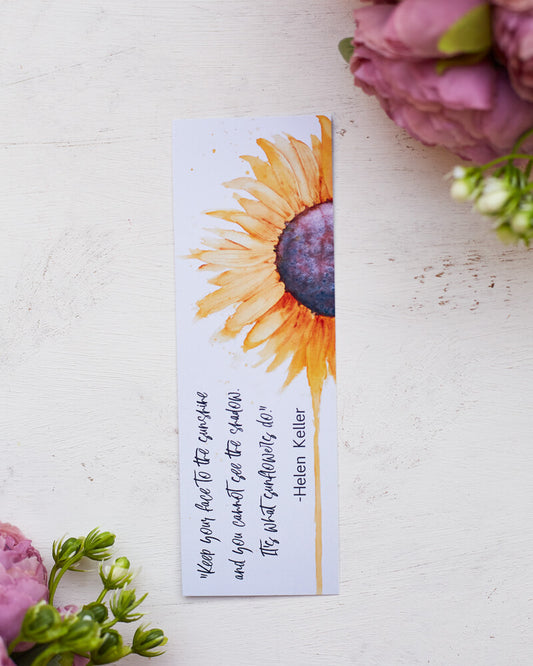 "Keep your face to the sunshine
and you cannot see the shadow.
It's what sunflowers do."
-Helen Keller